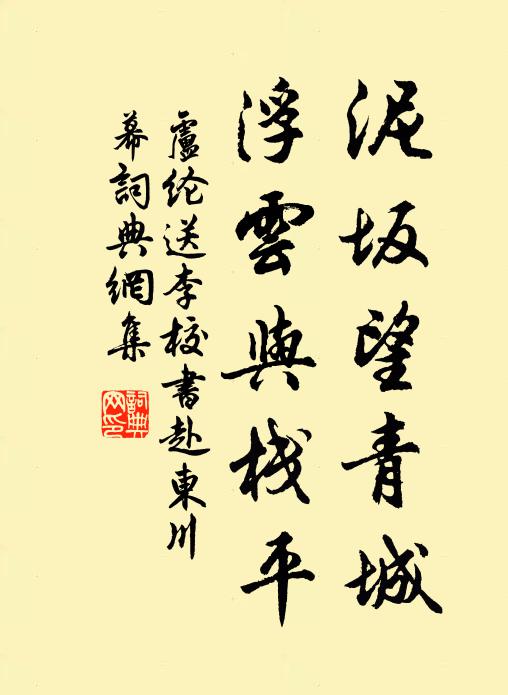 泥坂望青城
浮雲與棧平
盧纶送李校書赴東川
幕詞典網集
詞典
网印